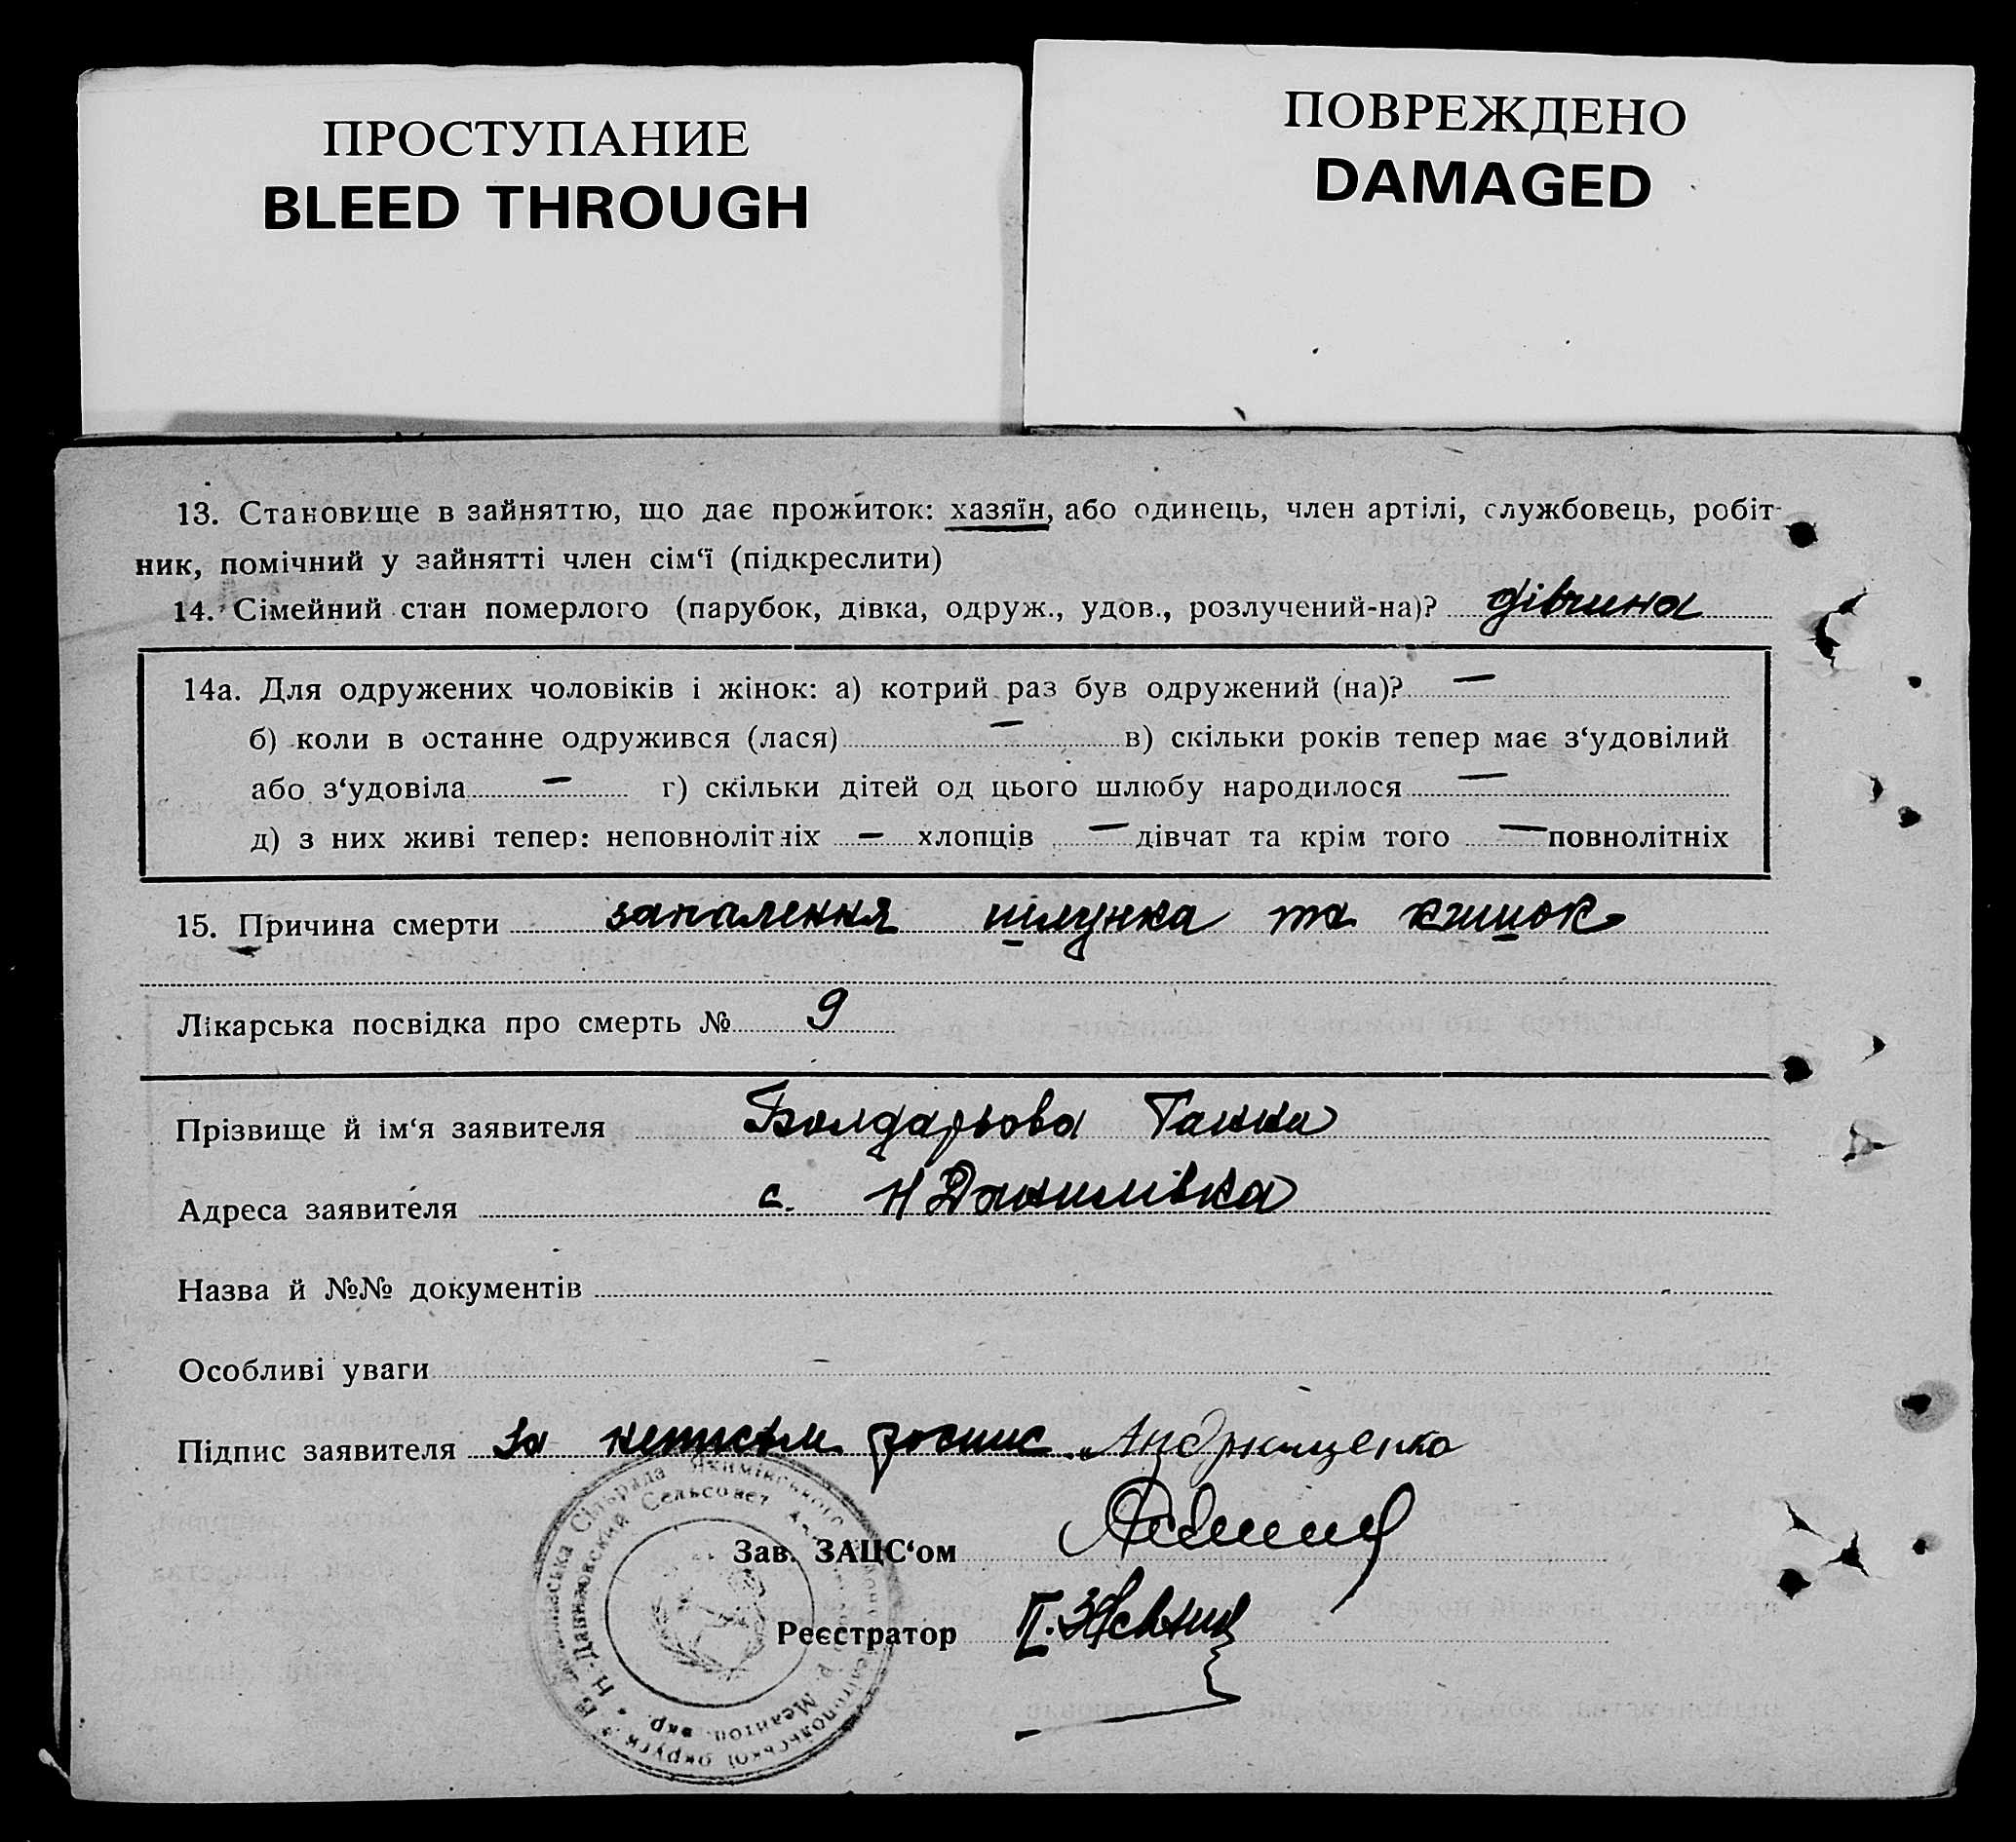 ПРОСТУПАНИЕ
BLEED THROUGH
ПОВРЕЖДЕНО
DAMAGED
13. Становище в зайняттю, що дає прожиток: хазяїн, або одинець, член артілі, службовець, робіт-
ник, помічний у зайнятті член сім‘ї (підкреслити)
14. Сімейний стан померлого (парубок, дівка, одруж., удов., розлучений-на)? дівчина
14а. Для одружених чоловіків і жінок: а) котрий раз був одружений (на)? —
б) коли в останне одружився (лася) — в) скільки років тепер має з‘удовілий
або з‘удовіла — г) скільки дітей од цього шлюбу народилося —
д) з них живі тепер: неповнолітніх — хлопців — дівчат та крім того — повнолітніх
15. Причина смерти запалення шлунка та кишок
Лікарська посвідка про смерть № 9
Прізвище й ім‘я заявителя Болдарьова Ганна
Адреса заявителя с. Н Данилівка
Назва й №№ документів
Особливі уваги
Підпис заявителя За неписьм роспис Андрющенко
Зав. ЗАЦС‘ом
Реєстратор
Сільрада Якимівського
Н-Даниловский Сельсовет р. Мелитоп. окр.